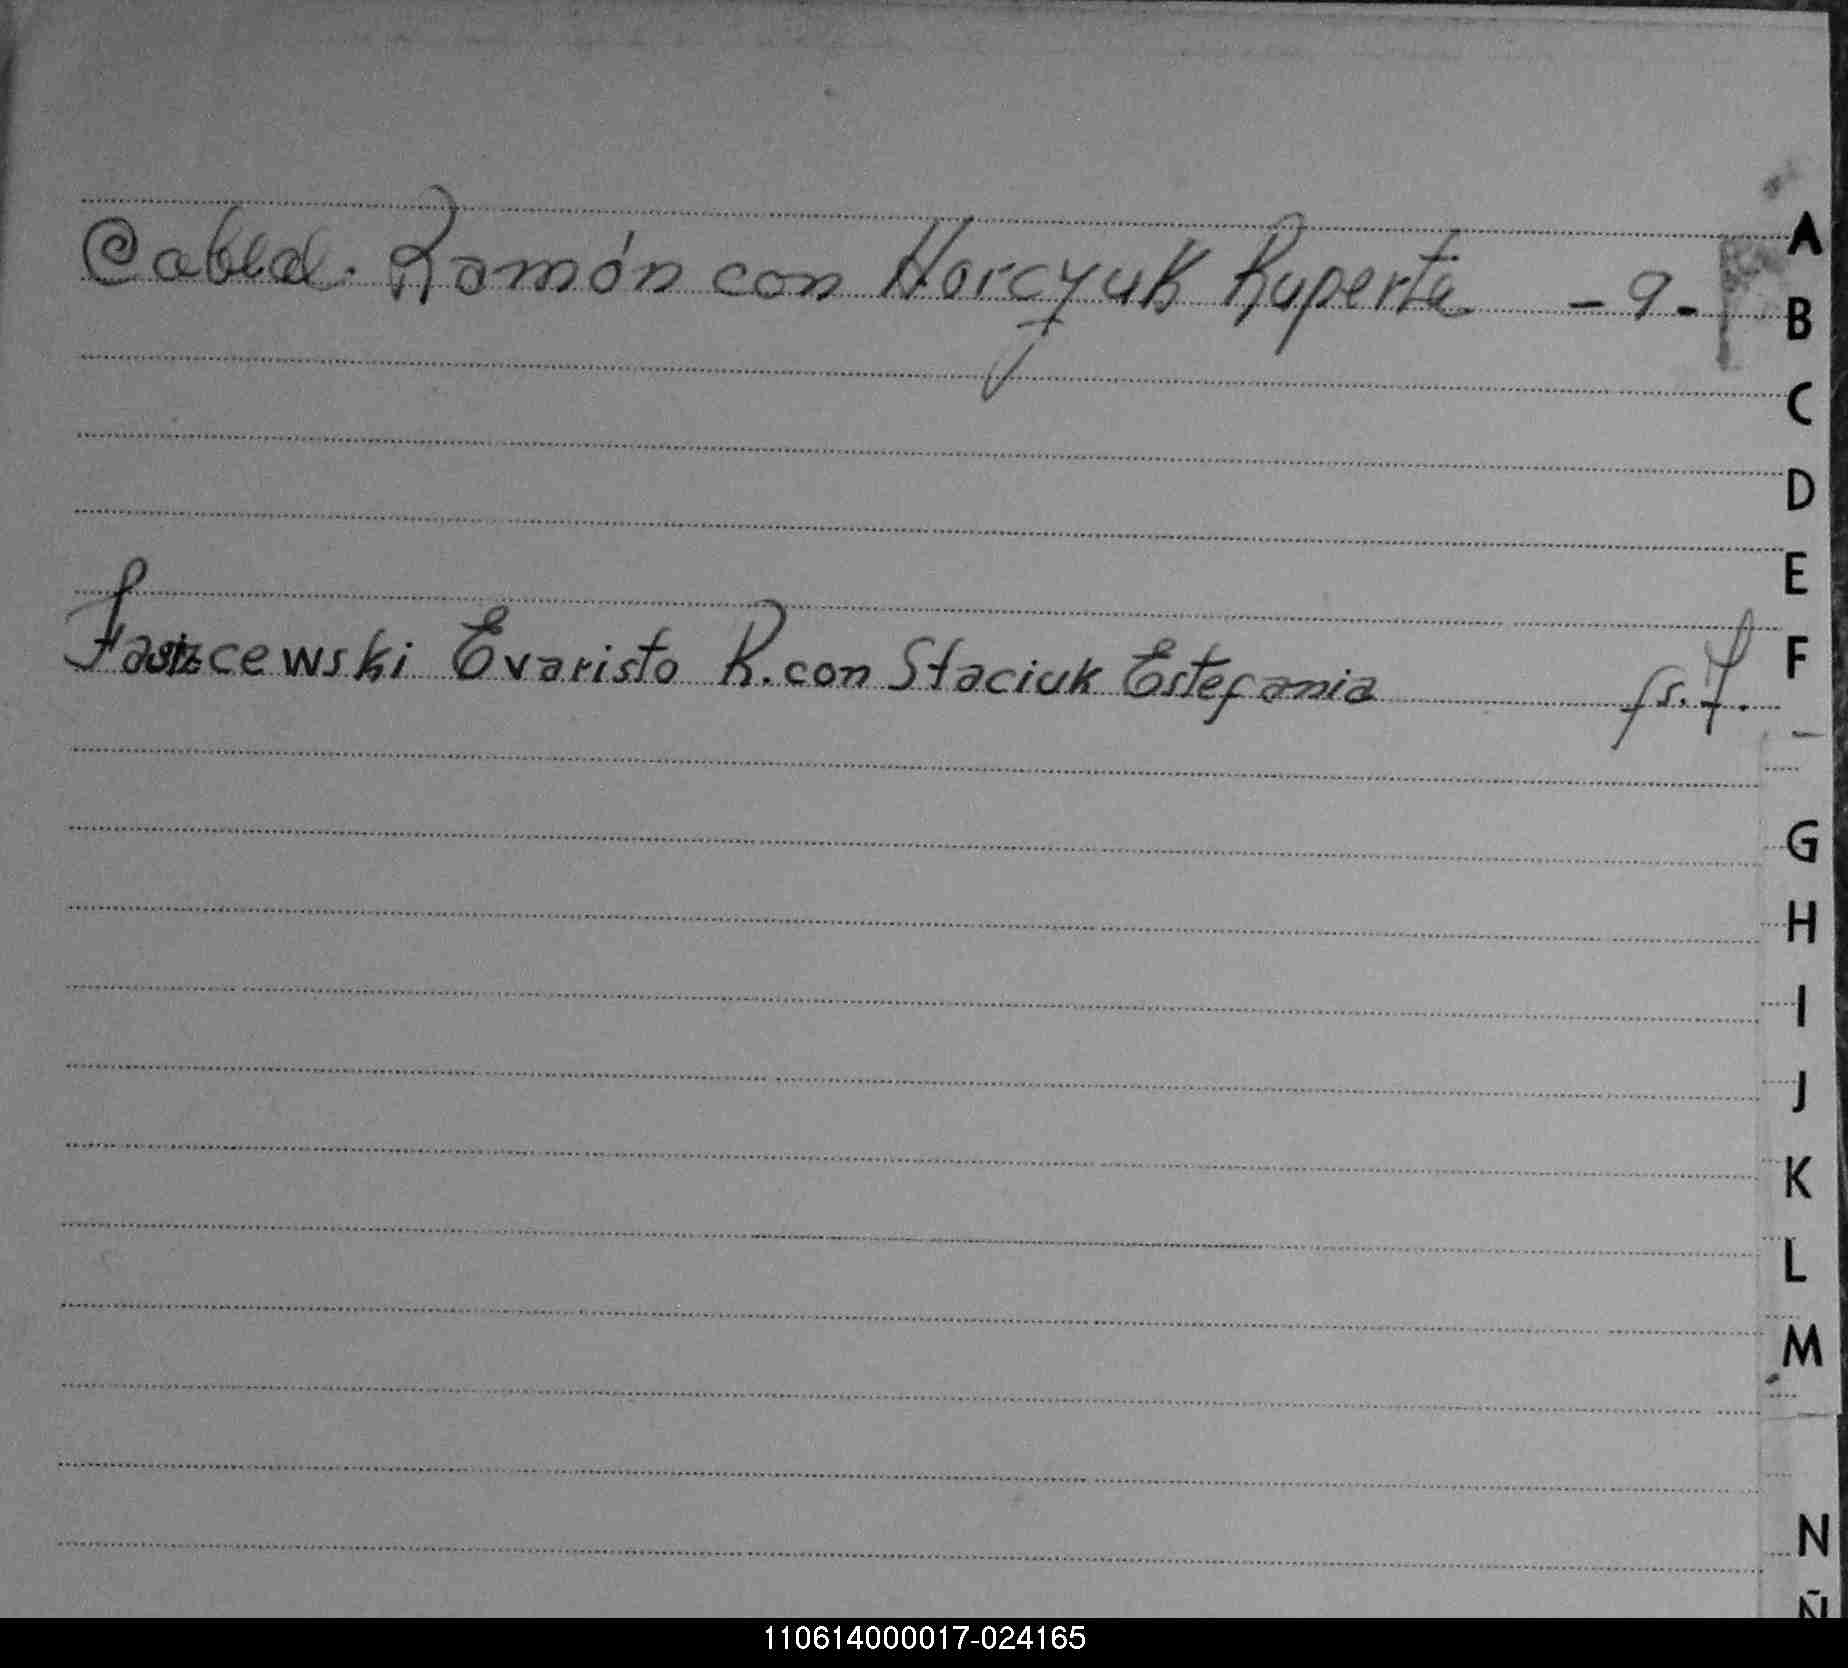 Cabral. Ramón con Horczuk Ruperta - 9 -
Fasizcewski Evaristo R. con Staciuk Estefania fs. 7.
A
B
C
D
E
F
G
H
I
J
K
L
M
N
Ñ
110614000017-024165